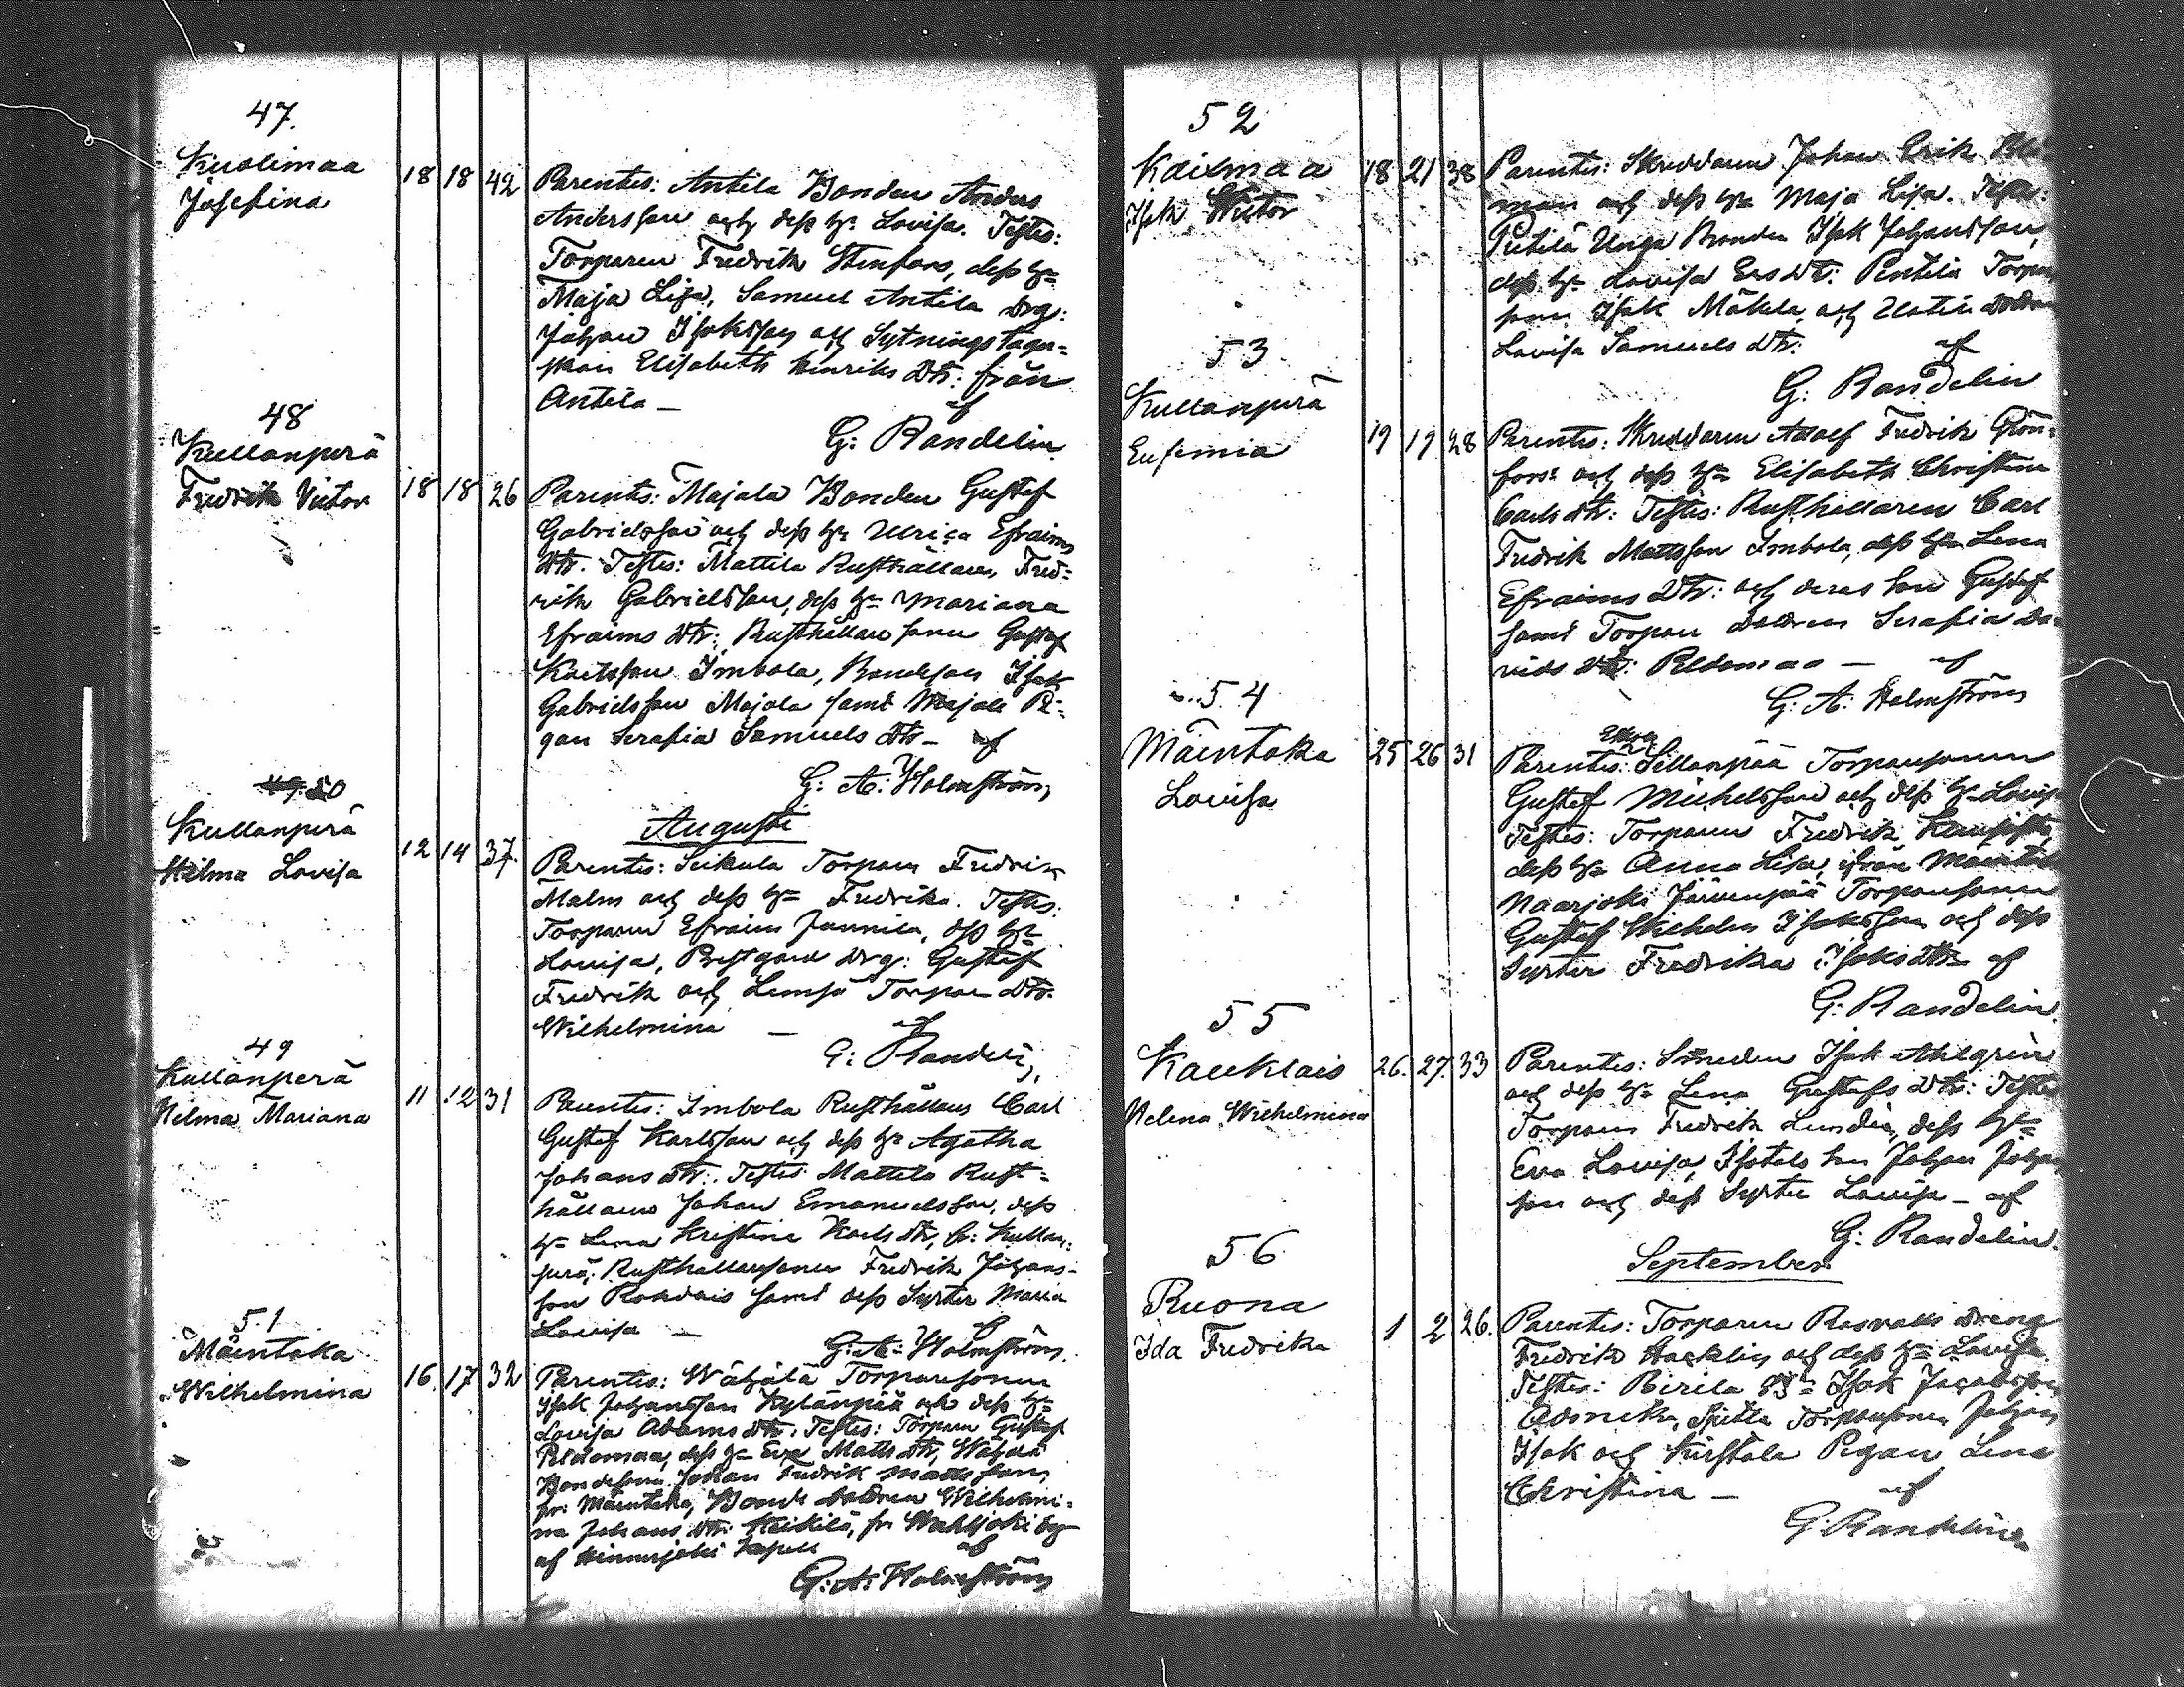 47.
Kuolimaa
Josefina
18 18 42
Parentes: Antila Bonden Anders
Andersson och dess h: Lovisa. Testes:
Torparen Fredrik Stenfors, dess h:
Maja Lisa, Samuel Antila drg:
Johan Isaksson och Sytningstagar-
skan Elisabeth Henriks Dtr: från
Antila — af
G: Randelin
48
Kullanperä
Fredrik Victor
18 18 26
Parentes: Majala Bonden Gustaf
Gabrielsson och dess h: Ulrica Efraims
Dtr. Testes: Mattila Rusthållaren, Fred-
rik Gabrielsson, dess h: Mariana
Efraims Dtr: Rusthållare sonen Gustaf
Imbola, Bondeson Isak
Gabrielsson Majala samt Majala Pi-
gan Serafia Samuels Dtr — af
G: A: Holmström
Augusti
49. 50
Kullanperä
Hilma Lovisa
12 14 37.
Parentes: Seikula Torparen Fredrik
Malm och dess h: Fredrika. Testes:
Torparen Efraim Junnila, dess h:
Lovisa, Prestgård drg: Gustaf
Fredrik och Torpare Dtr.
Wilhelmina — af
G: Randelin,
49
Kullanperä
Helma Mariana
11 12 31
Parentes: Imbola Rusthållaren Carl
Gustaf Karlsson och dess h: Agatha
Johans Dtr: Testes Mattila Rust-
hållaren Johan Emanuelsson, dess
h: Lena Kristina Karls Dtr, fr: Kullan-
perä; Rusthållaresonen Fredrik Johans-
son samt dess Syster Maria
Lovisa — af
G: A: Holmström.
51
Mäentaka
Wilhelmina
16. 17 32
Parentes: Wähälä Torparesonen
Isak Johansson Kylänpää och dess h:
Lovisa Adams Dtr. Testes: Torparen Gustaf
Peldomaa, dess h: Eva Matts Dtr, Wähälä
Bondesonen Johan Fredrik Mattsson,
fr: Mäentaka, Bonde dottren Wilhelmi-
na Johans Dtr: Heikilä, fr Wahljoki by
af Hinnerjoki kapell af
G: A: Holmström
52
Kaismaa
Isak Wictor
18 21 38
Parentes: Skreddaren Johan Erik
man och dess h: Maja Lisa. Testes:
Unga Bonden Isak Johansson,
dess h: Lovisa Ers Dtr: Pentilä Torpare
sonen Isak Mäkela, och dottren
Lovisa Samuels Dtr: af
G: Randelin
53
Kullanperä
Eufemia
19 19 28
Parentes: Skreddaren Adolf Fredrik Grön-
fors: och dess h: Elisabeth Christina
Carls dtr: Testes: Rusthållaren Carl
Fredrik Mattsson Imbola, dess h: Lena
Efraims Dtr: och deras son Gustaf
samt Torpare dottren Serafia Da-
vids Dtr: Peldomaa — af
G: A: Holmström
54
Mäentaka
Lovisa
25 26 31
Parentes: Sillanpää Torparesonen
Gustaf Michelsson och dess h: Lovisa
Testes: Torparen Fredrik
dess h: Anna Lisa, ifrån Mäentaka
Naarjoki Järvenpää Torparesonen
Gustaf Wilhelm Isaksson och dess
Syster Fredrika Isaksdtr af
G: Randelin.
55
Kauklais
Helena Wilhelmina
26. 27. 33
Parentes: Smeden Isak Ahlgrén
och dess h: Lena Gustafs Dtr: Testes
Torparen Fredrik Lundén, dess h:
Eva Lovisa, Isotalo son Johan Johans-
son och dess Syster Lovisa — af
G: Randelin.
September
56
Ruona
Ida Fredrika
1 2 26.
Parentes: Torparen dreng
Fredrik Hacklin och dess h: Lovisa
Testes: Birila Isak Jacobsson
Torparesonen Johan
Isak och Pigan Lena
Christina — af
G. Randelin